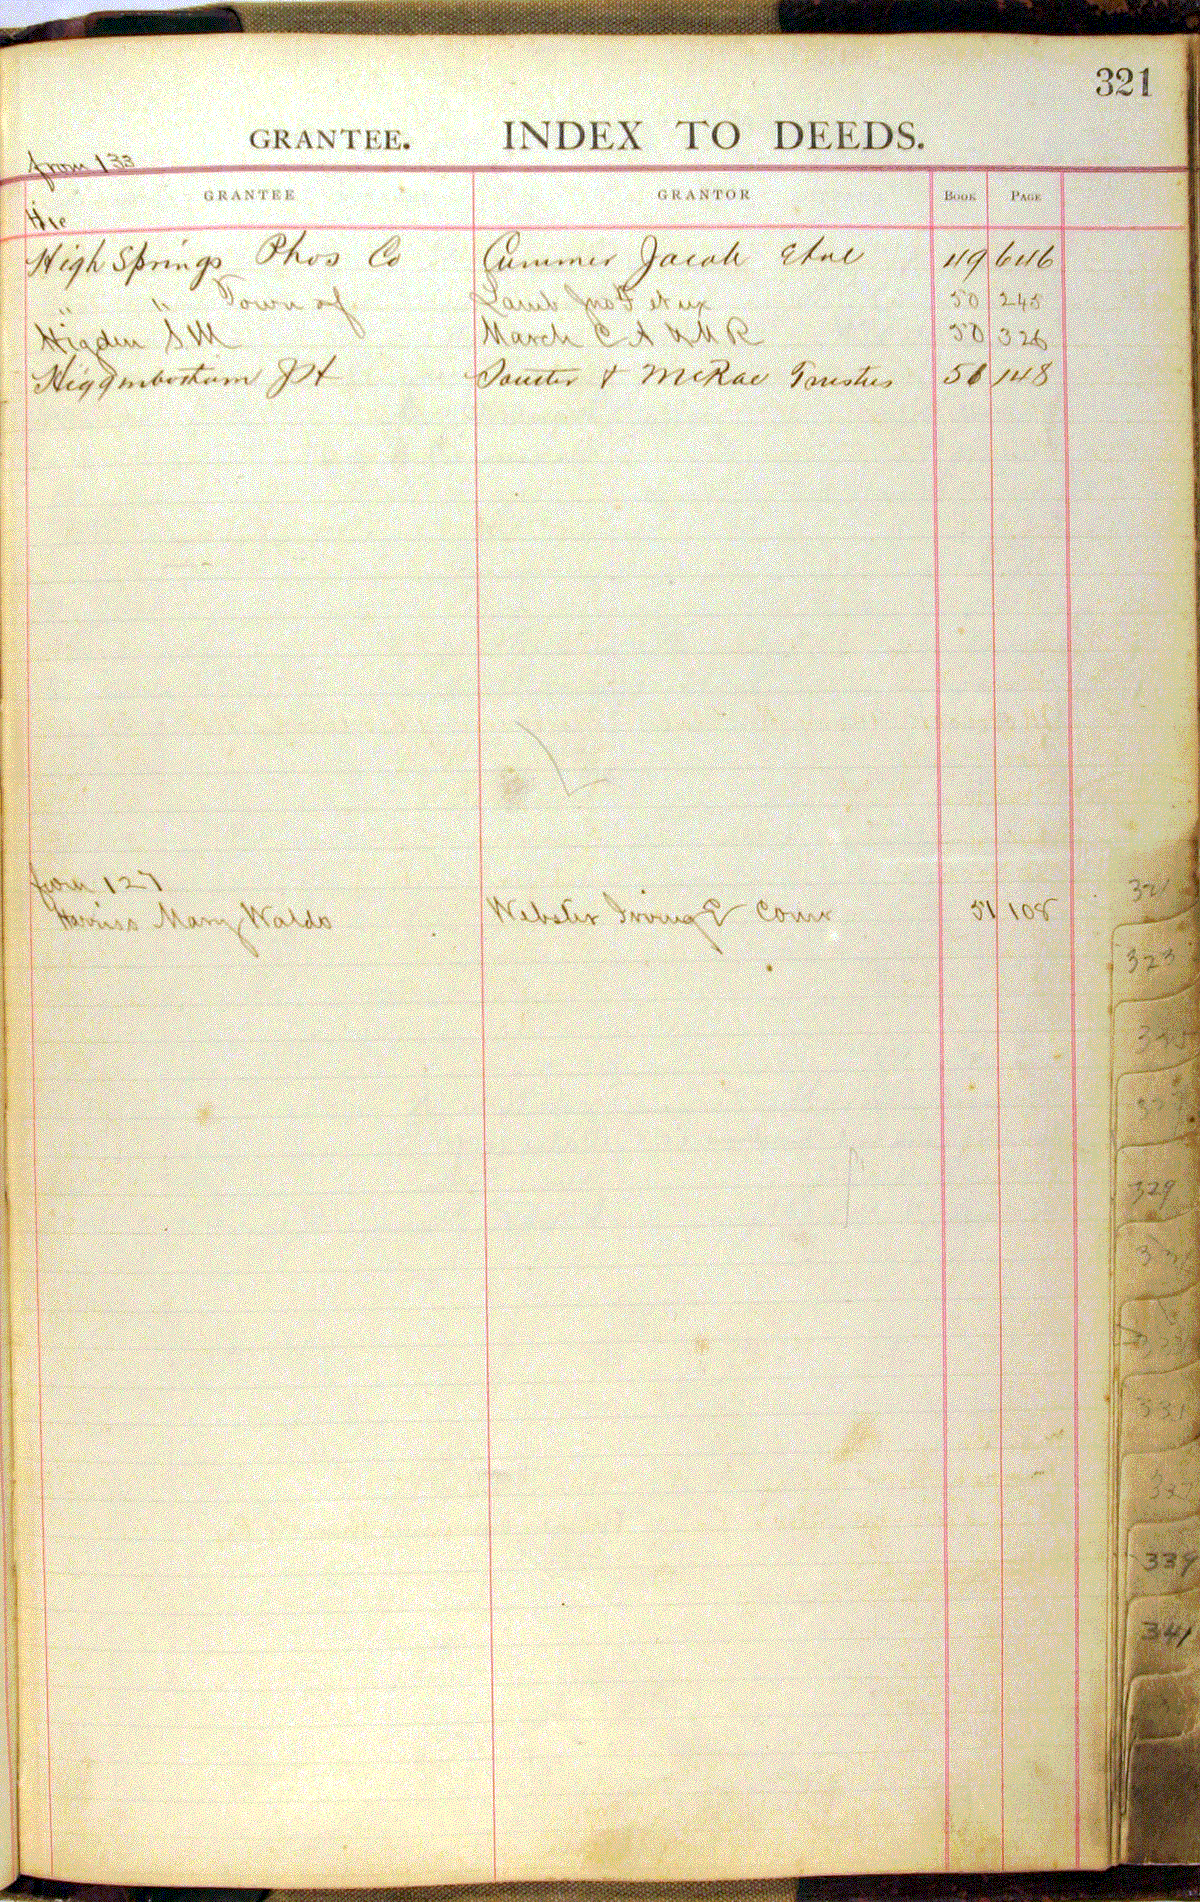 321
GRANTEE. INDEX TO DEEDS.
from 133
GRANTEE GRANTOR BOOK PAGE
Hie
High Springs Phos Co Cummer Jacob Etal 49 646
" " Town of Lamb Jno F et ux 50 245
Higden S M March C A & M R 50 326
Higginbotham J H Souter & McRae Trustees 50 148
from 127
Harriss Mary Waldo Webster Irving E Comr 51 108
321
323
329
339
341